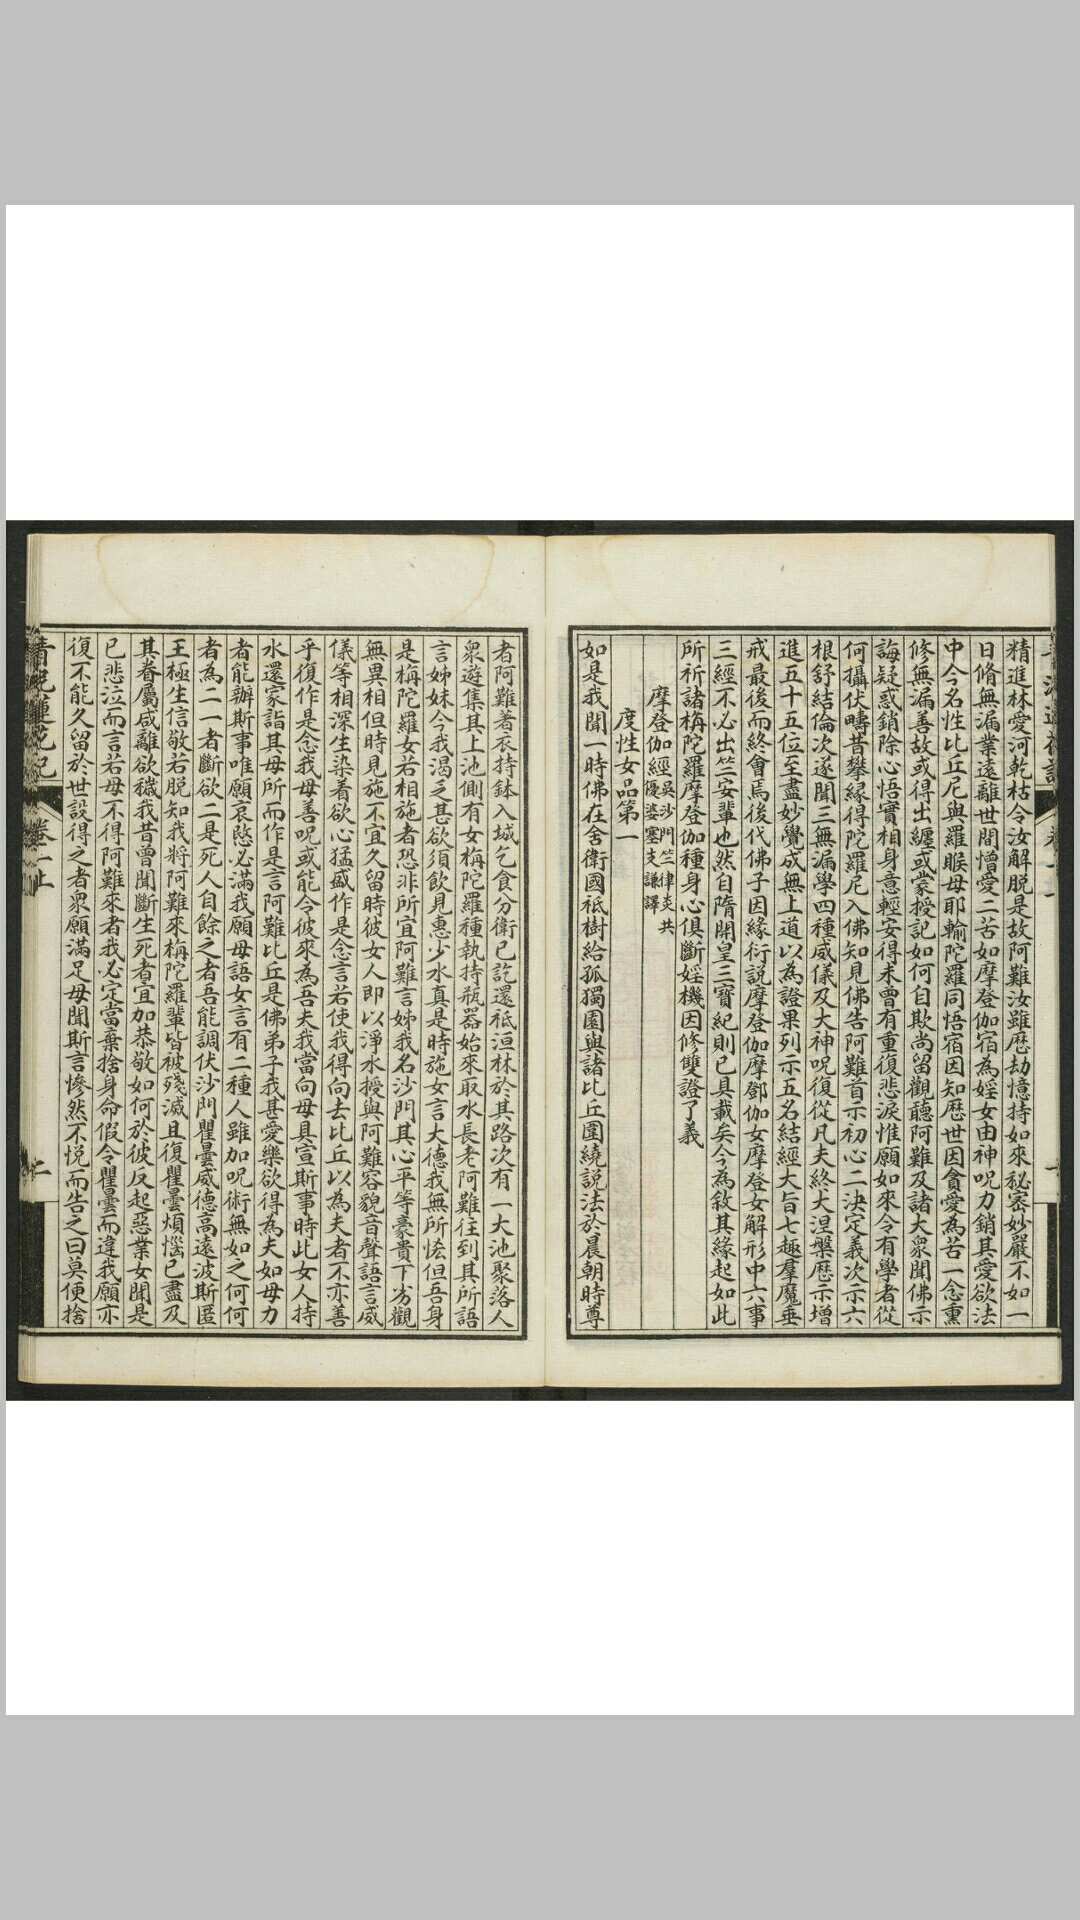 精進林愛河乾枯令汝解脫是故阿難汝雖歷劫憶持如來秘密妙嚴不如一
日脩無漏業遠離世間憎愛二苦如摩登伽宿為婬女由神呪力銷其愛欲法
中今名性比丘尼與羅睺母耶輸陀羅同悟宿因知歷世因貪愛為苦一念熏
修無漏善故或得出纏或蒙授記如何自欺尚留觀聽阿難及諸大衆聞佛示
誨疑惑銷除心悟實相身意輕安得未曾有重復悲淚惟願如來今有學者從
何攝伏疇昔攀緣得陀羅尼入佛知見佛告阿難首示初心二決定義次示六
根舒結倫次遂聞三無漏學四種威儀及大神呪復從凡夫終大涅槃歷示增
進五十五位至盡妙覺成無上道以為證果列示五名結經大旨七趣羣魔垂
戒最後而終會焉後代佛子因緣衍說摩登伽摩鄧伽女摩登女解形中六事
三經不必出竺安輩也然自隋開皇三寶紀則已具載矣今為敘其緣起如此
所祈諸栴陀羅摩登伽種身心俱斷婬機因修雙證了義
摩登伽經吳沙門竺律炎共優婆塞支謙譯
度性女品第一
如是我聞一時佛在舍衛國祗樹給孤獨園與諸比丘圍繞說法於晨朝時尊
者阿難著衣持鉢入城乞食分衛已訖還祗洹林於其路次有一大池聚落人
衆遊集其上池側有女栴陀羅種執持瓶器始來取水長老阿難往到其所語
言姊妹今我渴乏甚欲須飲見惠少水真是時施女言大德我無所恡但吾身
是栴陀羅女若相施者恐非所宜阿難言姊我名沙門其心平等豪貴下劣觀
無異相但時見施不宜久留時彼女人即以淨水授與阿難容貌音聲語言威
儀等相深生染着欲心猛盛作是念言若使我得向去比丘以為夫者不亦善
乎復作是念我母善呪或能令彼來為吾夫我當向母具宣斯事時此女人持
水還家詣其母所而作是言阿難比丘是佛弟子我甚愛樂欲得為夫如母力
者能辦斯事唯願哀愍必滿我願母語女言有二種人雖加呪術無如之何何
者為二一者斷欲二是死人自餘之者吾能調伏沙門瞿曇威德高遠波斯匿
王極生信敬若脫知我將阿難來栴陀羅輩皆被殘滅且復瞿曇煩惱已盡及
其眷屬咸離欲穢我昔曾聞斷生死者宜加恭敬如何於彼反起惡業女聞是
已悲泣而言若母不得阿難來者我必定當棄捨身命假令瞿曇而違我願亦
復不能久留於世設得之者衆願滿足母聞斯言慘然不悅而告之曰莫便捨